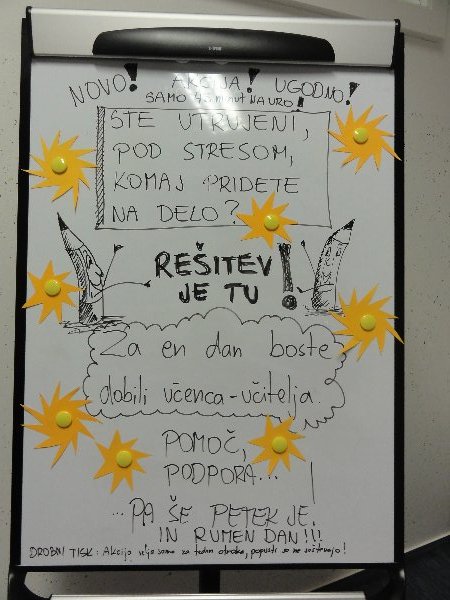 NOVO! AKCIJA! UGODNO!
SAMO 45 minut NA URO!
STE UTRUJENI,
POD STRESOM,
KOMAJ PRIDETE
NA DELO?
REŠITEV
JE TU!
Za en dan boste
dobili učenca-učitelja.
POMOČ,
PODPORA...
...PA ŠE PETEK JE
IN RUMEN DAN!!!
DROBNI TISK: Akcija velja samo za teden otroka, popusti se ne seštevajo!